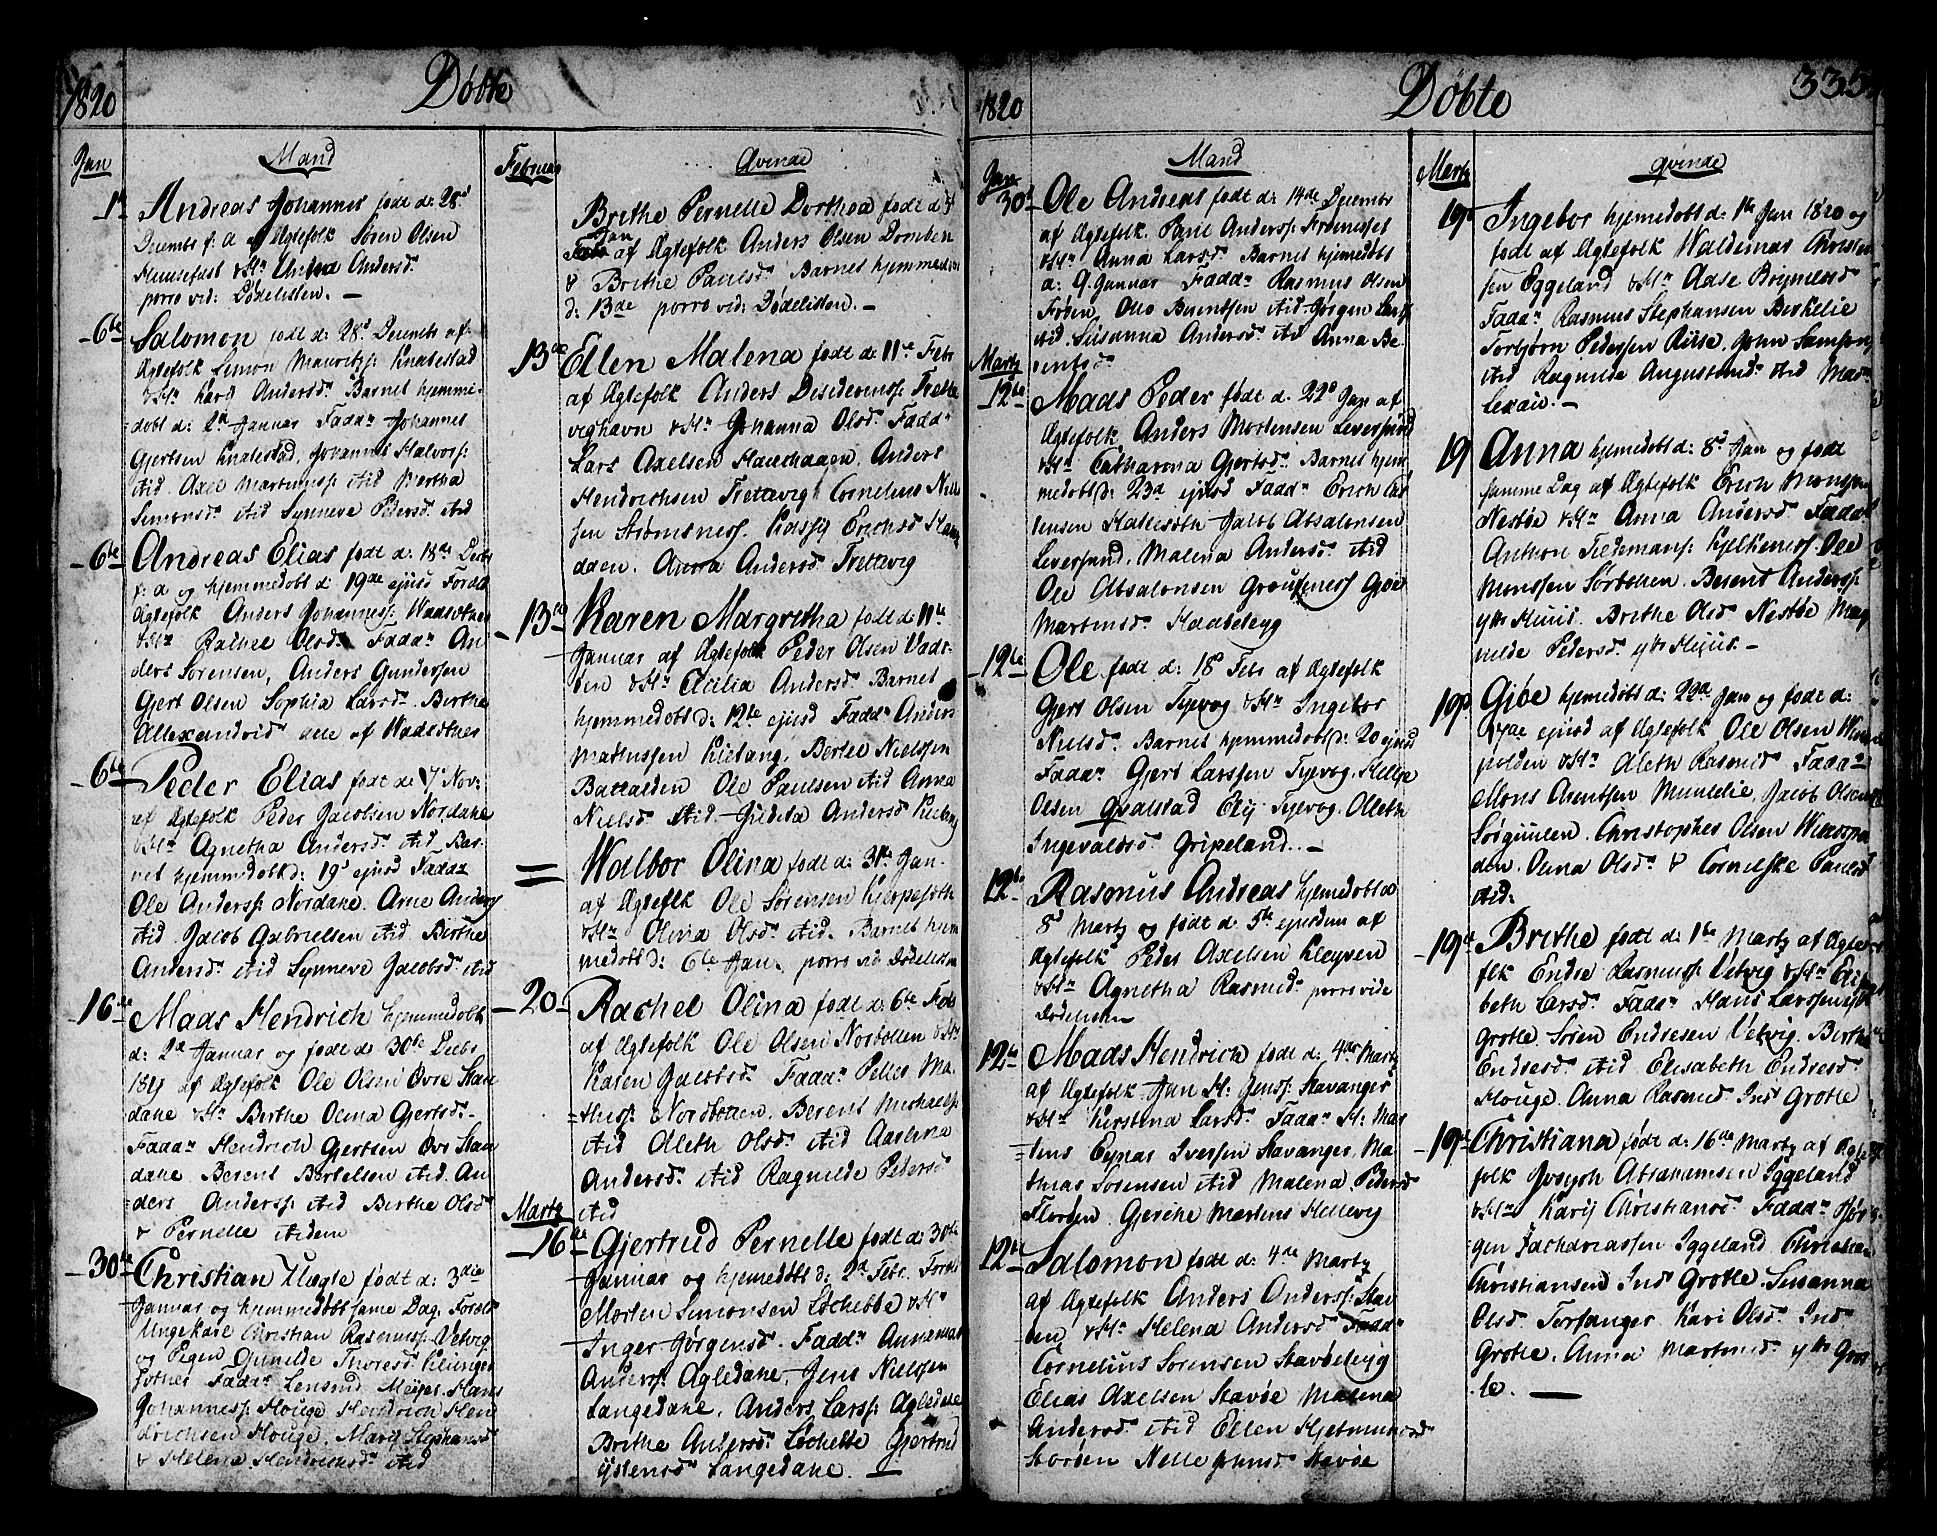 1820 Døbte
Jan Mand
1te Andreas Johannes født d: 28d
Decembr f: a af Ægtefolk Sören Olsen
& Hu Anna Andersd.
porro vid: Dödelisten. —
6te Salomon født d: 28d Decembr af
Ægtefolk Simon Mauritz: Knalestad
& Hu Karij Andersdr Barnet hjemme
døbt d: 2d Januar Faddr Johannes
Gjertsen Knalestad, Johannes Halvors:
stid. Axel Martinuss: stid Bertha
Simonsdr stid Synneve Pedersdr stid
6te Andreas Elias født d: 18de Decbr
f: a og hjemmedøbt d: 19de ejusd Forældr
Ægtefolk Anders Johanness: Waasetnes
& Hu Olsdr Faddr An
ders Sörensen, Anders Gundersen
Gjert Olsen Sophia Larsdr Berthe
alle af Waasetnes
6te Peder Elias født d: 7d Nov:
af Ægtefolk Peder Jacobsen Nordane
& Hu Agnetha Andersdr stid Bar
net hjemmedøbt d: 19d ejusd Faddr
Ole Anderss: Nordane. Arne Anders
stid Jacob Gabrielsen stid Birthe
Andersdr stid Synneve Jacobsdr stid
16de Maas Hendrich hjemmedøbt
d: 2d Januar og født d: 30te Decbr
1819 af Ægtefolk Ole Olsen Övre Staae
dane & Hu Berthe Olina Gjertsdr
Faddr Hendrich Gjertsen Övr Staae
dane Berent Bertelsen stid An
ders Anderss: stid Berthe Olsd
& Pernelle stidem
30te Christian Uægte født d: 3die
Januar og hjemmedøbt samme Dag. Foreldr
Ungekarl Christian Rasmuss: Vetvig
og Pigen Gunilde Thoresd:
Faddr Lensmd Meyer. Hans
Johanness: Houge Hendrich Hen
drichsen Houge. Marij Stephansd
& Helena Hendrichsdr stid
Februar Qvinde
Brithe Pernelle Dorthea født d: 5
Jan af Ægtefolk Anders Olsen Domben
& Brithe Paulsdr Barnet hjemmedøbt
d: 13de porro vid: Dødelisten. —
13de Ellen Malena født d: 11te Febr
af Ægtefolk Anders Desideriuss: Frette
vighavn & Hu Johanna Olsdr Faddr
Lars Axelsen Anders
Hendrichsen Frettevig Cornelius Niel
sen Strömsness. Erichsd
daen. Anna Andersdr Frettevig
13de Karen Margretha født d: 11te
Januar af Ægtefolk Peder Olsen Vads
& Hu Cicilia Andersdr Barnet
hjemmedøbt d: 12te ejusd Faddr Anders
Mathissen Bertel Nielssen
Batalden Ole Paulsen stid Anna
Nielsdr stid. Andersdr
= Walbor Olina født d: 3die Jan.
af Ægtefolk Ole Sörensen
& Hu Olina Olsdr stid. Barnet hjem
medøbt d: 6te Jan. porro vid Dødelisten
20 Rachel Olina født d: 6te Feb
af Ægtefolk Ole Olsen Norbotten & Hu
Karen Jacobsdr Faddr Peder Ma
thiss: Nordbotten. Berent Michaels:
stid Aleth Olsdr stid Aarlina
Andersdr stid Ragnilde Pedersdr
stid
Martz
16de Gjertrud Pernelle født d: 30te
Januar og hjemmedøbt d: 2d Febr. Foreldr
Morten Simonsen Löchebö & Hu
Inger Jörgensdr. Faddr
Anderss: Agledane. Jens Nielsen
Langedane. Anders Larss: Agledane
Brithe Andersdr Löchebö Gjertrud
Ijstensdr Langedane. —
1820 Døbte 335
Jan Mand
30d Ole Andreas født d: 14de Decembr
af Ægtefolk Paul Anderss: Strömsnes
& Hu Anna Larsdr Barnet hjemedøbt
d: 9 Januar Faddr Rasmus Olsen
Fröien, Ole Berentsen stid Jörgen Lars:
stid Susanna Andersdr stid Anna Be
rentsdr
Martz
12te Maas Peder født d. 22d Jan af
Ægtefolk Anders Mortensen Leversund
& Hu Catharina Gjertsdr Barnet hjem
medøbt d: 23d ejusd Faddr Erich
Jacob Absalonsen
Leversund. Malena Andersdr stid
Ole Absalonsen Gjöe
Martinsdr
12te Ole født d: 18d Febr af Ægtefolk
Gjert Olsen Tyevog & Hu Ingebor
Nielsdr. Barnet hjemmedøbt d: 20 ejusd
Faddr Gjert Larssen Tyevog. Helge
Olsen Qvalstad Elij Tyevog. Aleth
Ingevaldsdr Gripeland. —
12te Rasmus Andreas hjemedøbt d
8d Martz og født d. 5te ejusdem af
Ægtefolk Peder Axelsen Kleyven
& Hu Agnetha Rasmusdr porro vide
Dödelisten
12te Maas Hendrich født d: 4de Martz
af Ægtefolk Jan H: Jenss: Stavanger
& Hu Kirstina Larsdr Faddr H: Mar
tens Eynar Iversen Stavanger. Ma
thias Sörensen stid Malena Pedersd
Florøen Gjerche Martens Hellevig
12te Salomon født d: 4de Martz
af Ægtefolk Anders Anderss: Stav
öen & Hu Helena Andersdr Faddr
Cornelius Sörensen
Elias Axelsen Stavöe Malena
Andersdr stid Ellen Hjetmundsdr
Storöen Nille Johnsdr Stavöe
Martz Qvinde
19de Ingebor hjemedøbt d: 1te Jan 1820 og
født af Ægtefolk Waldemar Christen
sen Eggeland & Hu Aase Brynelsdr
Faddr Rasmus Stephansen Berkelie
Torbjörn Pedersen Riise. John Samsons:
stid Ragnilde Augustinusdr stid Mar
19 Anna hjemedøbt d: 8d Jan og født
samme Dag af Ægtefolk Erich Monssen
Nesböe & Hu Anna Andersdr Faddr
Anthon Tiedemans: Hjelkenes. Ole
Monssen Sörbotten. Berent Anderss:
ytr Huus. Brithe Olsd Nesböe Mag
nilde Pedersdr ytr Huus. —
19de Gjöe hjemedøbt d: 29de Jan og født d:
ejusd af Ægtefolk Ole Olsen
& Hu Aleth Rasmusd Faddr
Mons Arentsen Jacob Olsen
Christopher Olsen
den. Olina Olsdr & Cornelske Paulsdr
stid.
19de Brithe født d: 1te Martz af Ægte
folk Endre Rasmuss: Vetvig & Hu Elisa
beth Larsdr Faddr Hans Larssen
Grotle. Sören Endresen Vetvig. Birthe
Endresdr stid Elisabeth Endresdr
Houge. Anna Rasmusd Ind Grotle
19de Christiana født d: 16de Martz af Ægte
folk Joseph Abrahamsen Iggeland
& Hu Karij Christiansdr Faddr Jör
gen Zachariassen Iggeland Christian
Christiansen Ind Grotle. Susanna
Olsdr Torfanger Kari Olsdr Ind
Grotle. Anna Martinusdr ytr Grot
le. —